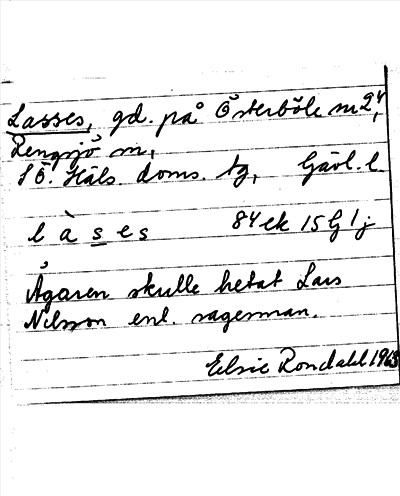 Lasses, gd. på Österböle m 2⁴,
Rengsjö sn,
SÖ. Häls. doms. tg, Gävl. l.
l à s e s 84 ek 15 G 1 j
Ågaren skulle hetat Lars
Nilsson enl. sagesman.
Elsie Rondahl 1963